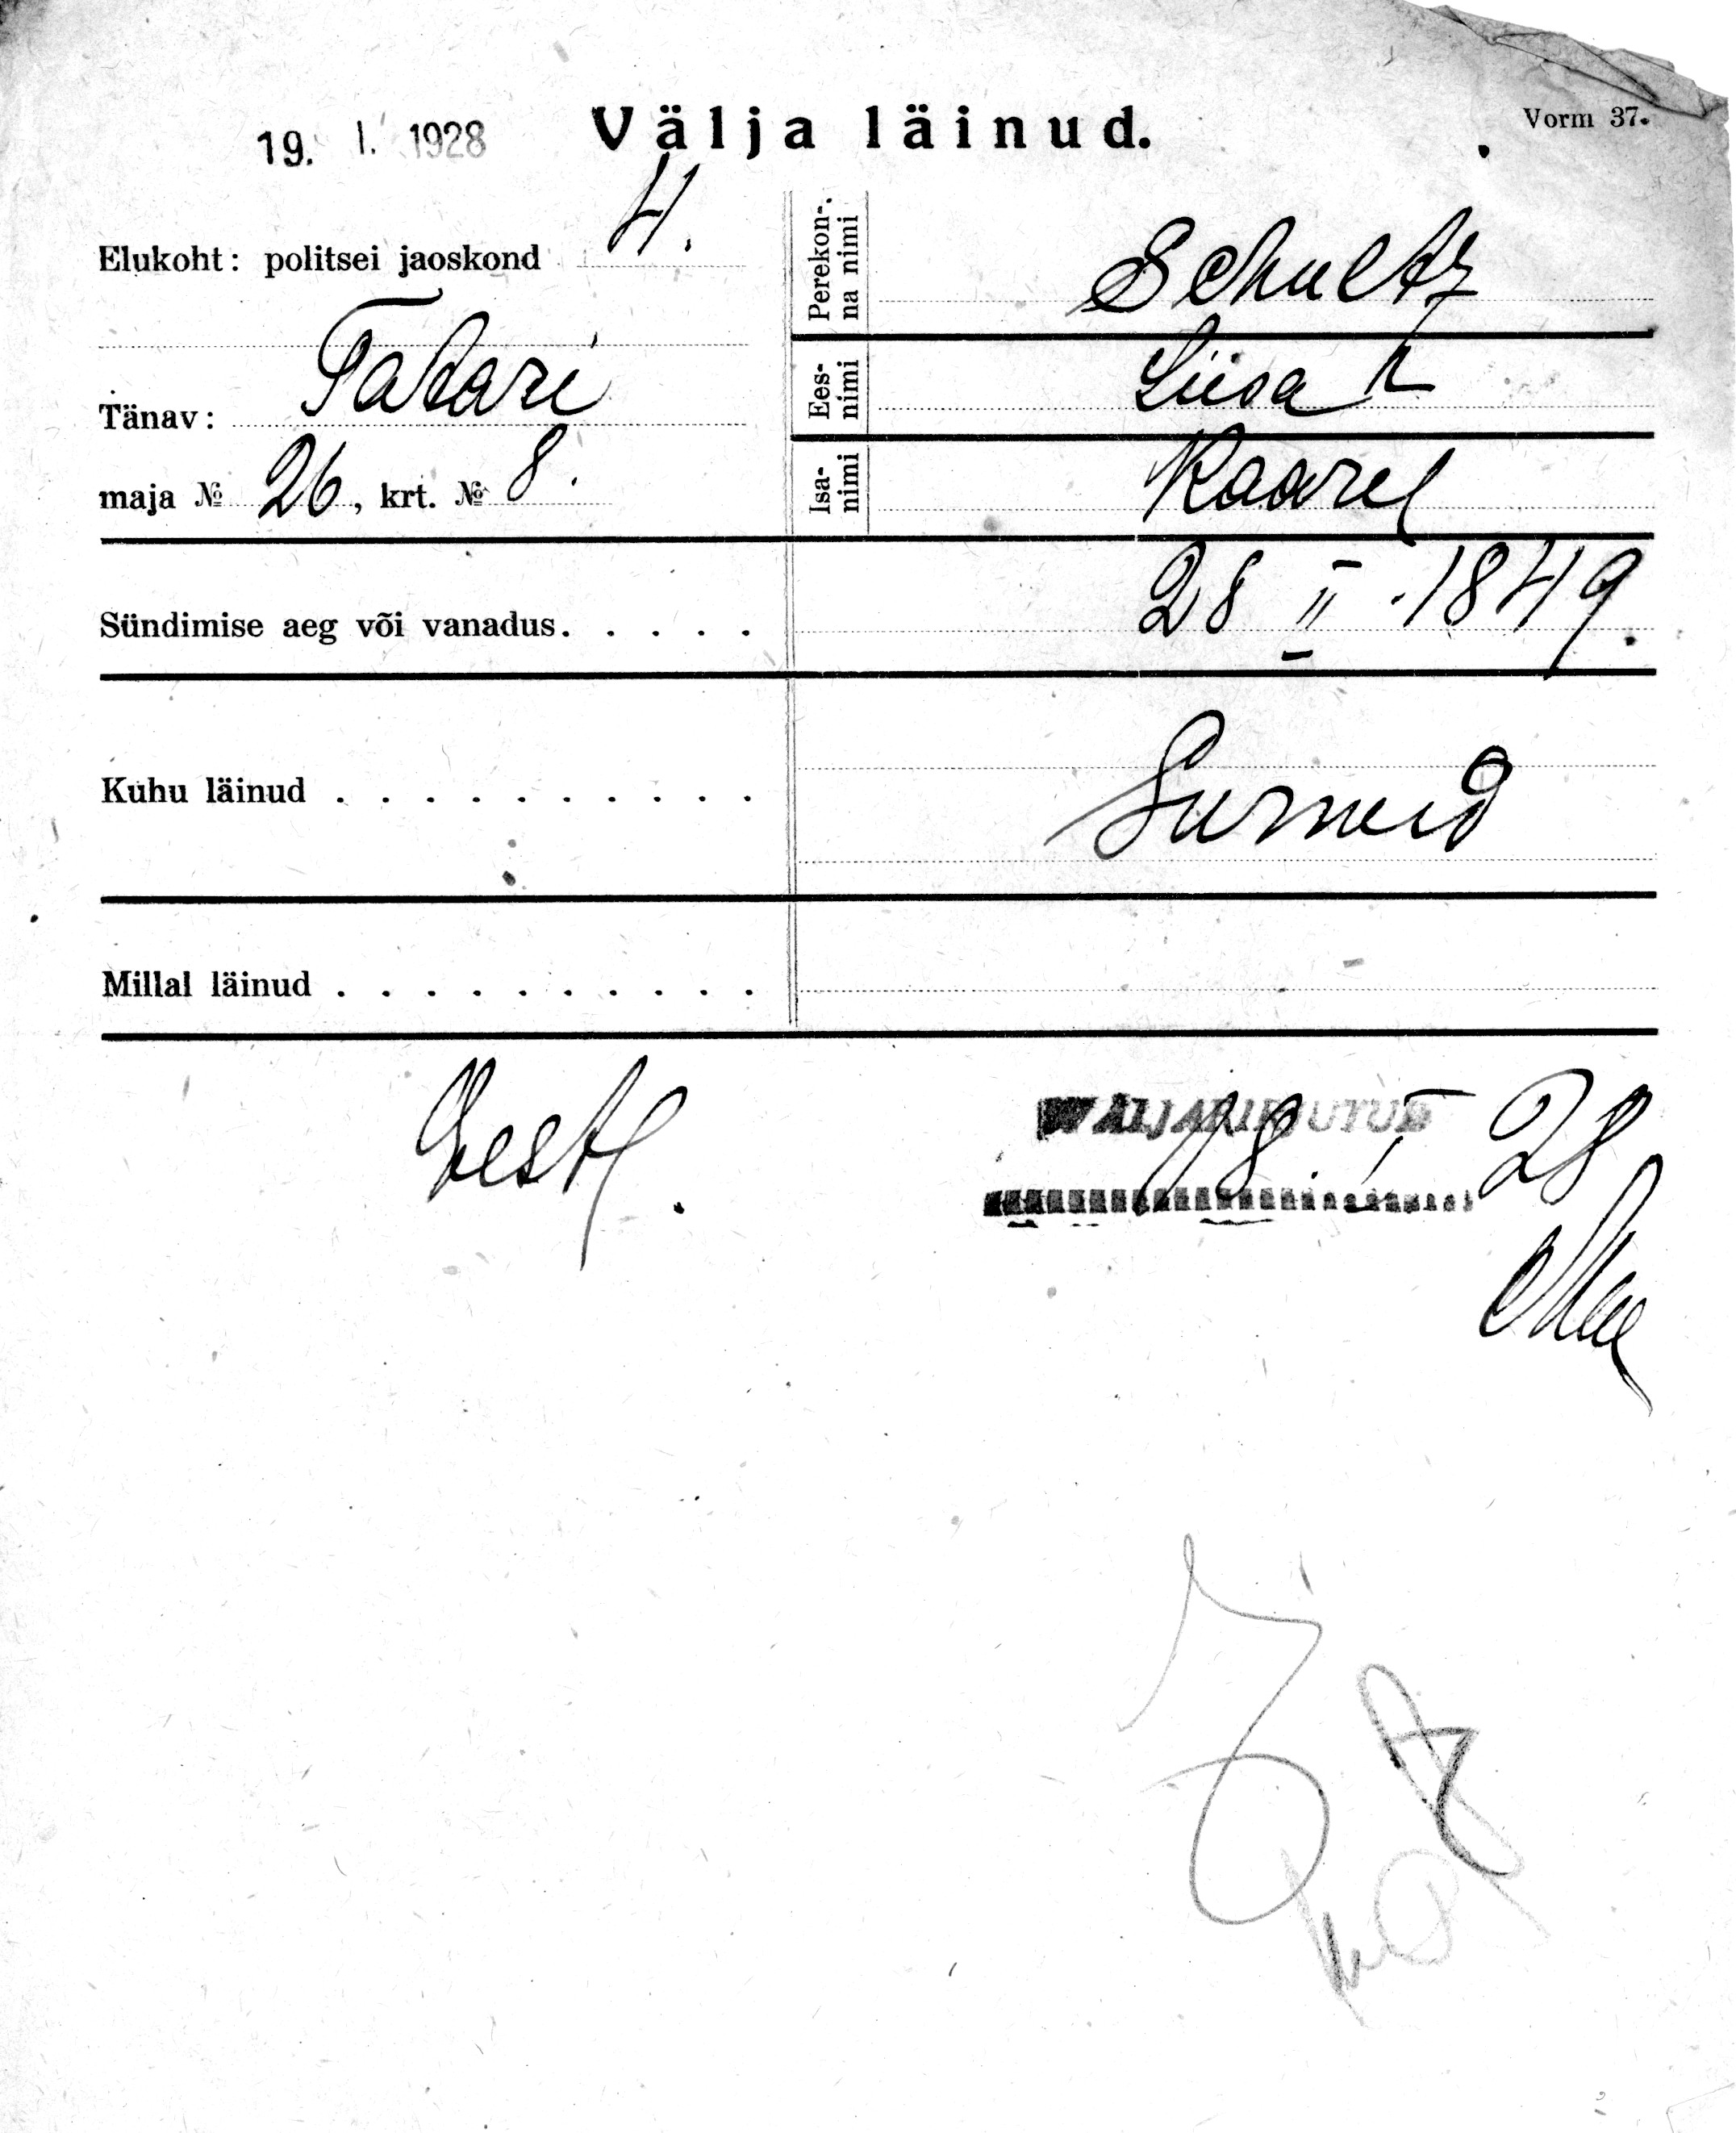 19. I. 1928
Välja läinud.
Vorm 37.
Elukoht: politsei jaoskond 4.
Tänav: Tatari
maja № 26, krt. № 8.
Perekon-
na nimi
Schultz
Ees-
nimi
Liisa
Isa-
nimi
Kaarel
Sündimise aeg või vanadus. . . . .
28 II. 1849.
Kuhu läinud . . . . . . . . . .
Surnud
Millal läinud . . . . . . . . . .
Eestl.
WÄLJAKIRJUTUD
18. I 28